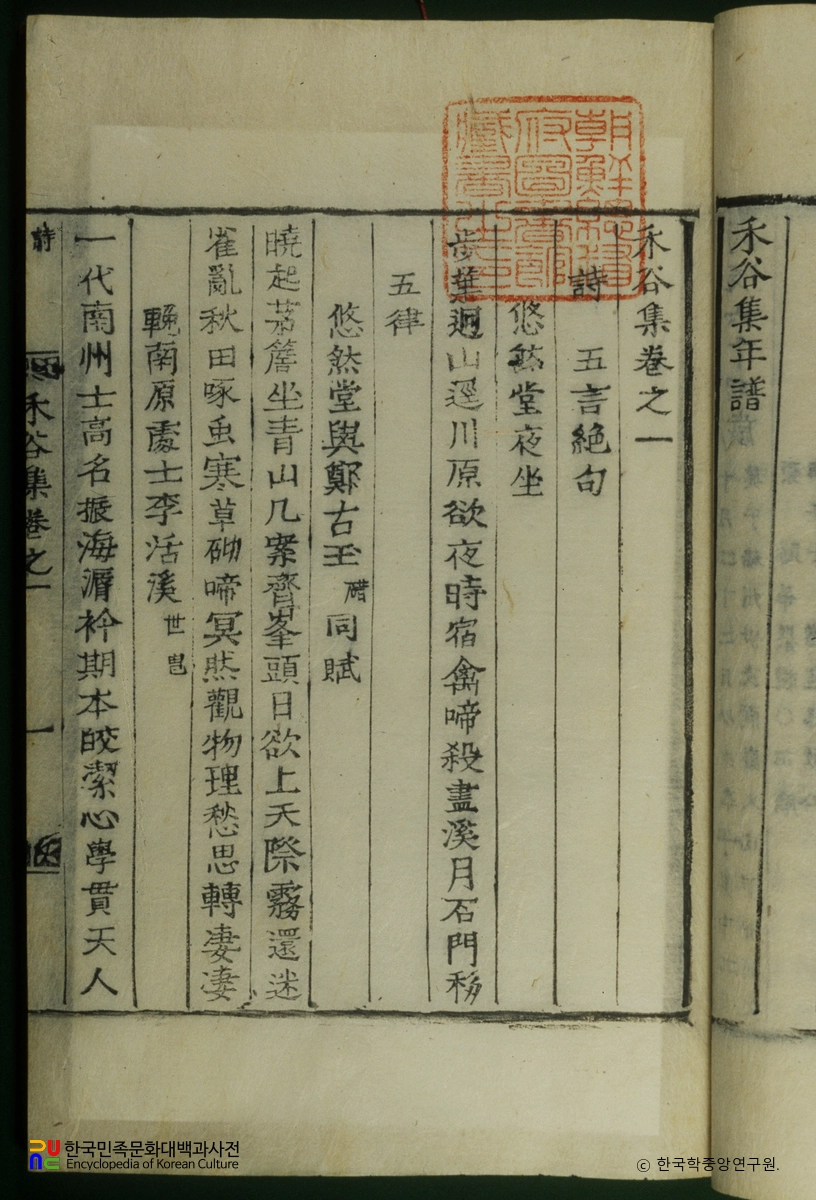 禾谷集年譜
禾谷集卷之一
詩 五言絶句
悠然堂夜坐
葉迥山逕川原欲夜時宿禽啼殺盡溪月石門移
五律
悠然堂與鄭古玉碏同賦
曉起茅簷坐青山几案齊峯頭日欲上天際霧還迷
雀亂秋田啄虫寒草砌啼冥然觀物理愁思轉凄凄
輓南原處士李活溪世
一代南州士高名振海漘衿期本皎潔心學貫天人
詩 禾谷集卷之一 一
朝鮮總督
府圖書館
藏書之印
한국민족문화대백과사전
Encyclopedia of Korean Culture
ⓒ 한국학중앙연구원.